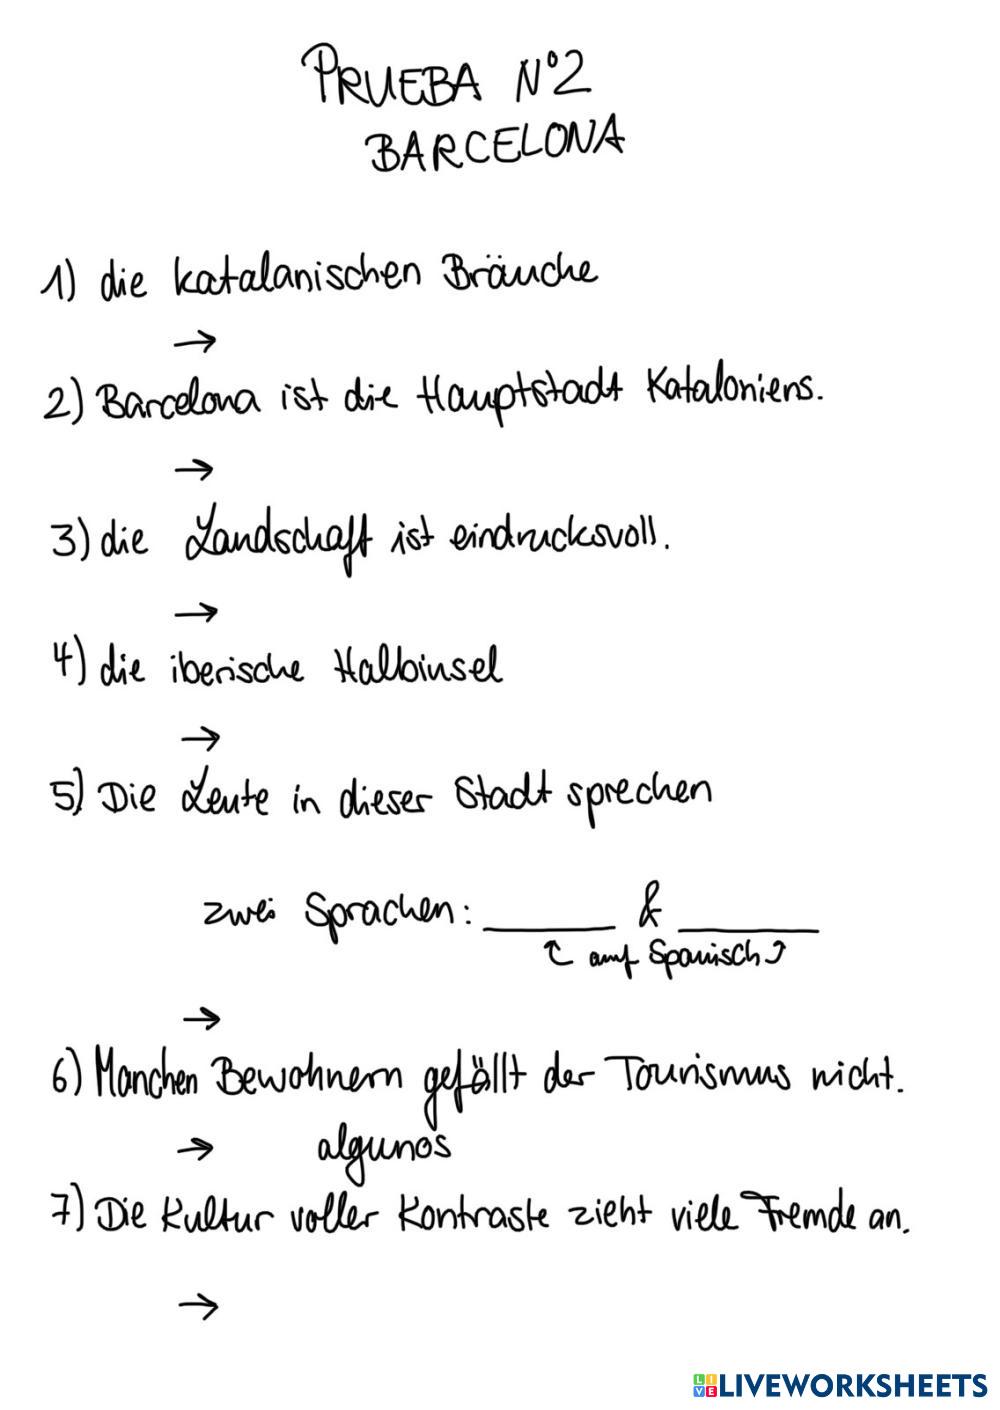 PRUEBA N°2
BARCELONA
1) die katalanischen Bräuche
→
2) Barcelona ist die Hauptstadt Kataloniens.
→
3) die Landschaft ist eindrucksvoll.
→
4) die iberische Halbinsel
→
5) Die Leute in dieser Stadt sprechen
zwei Sprachen: ______ & ______
auf Spanisch
→
6) Manchen Bewohnern gefällt der Tourismus nicht.
→ algunos
7) Die Kultur voller Kontraste zieht viele Fremde an.
→
LIVE LIVEWORKSHEETS